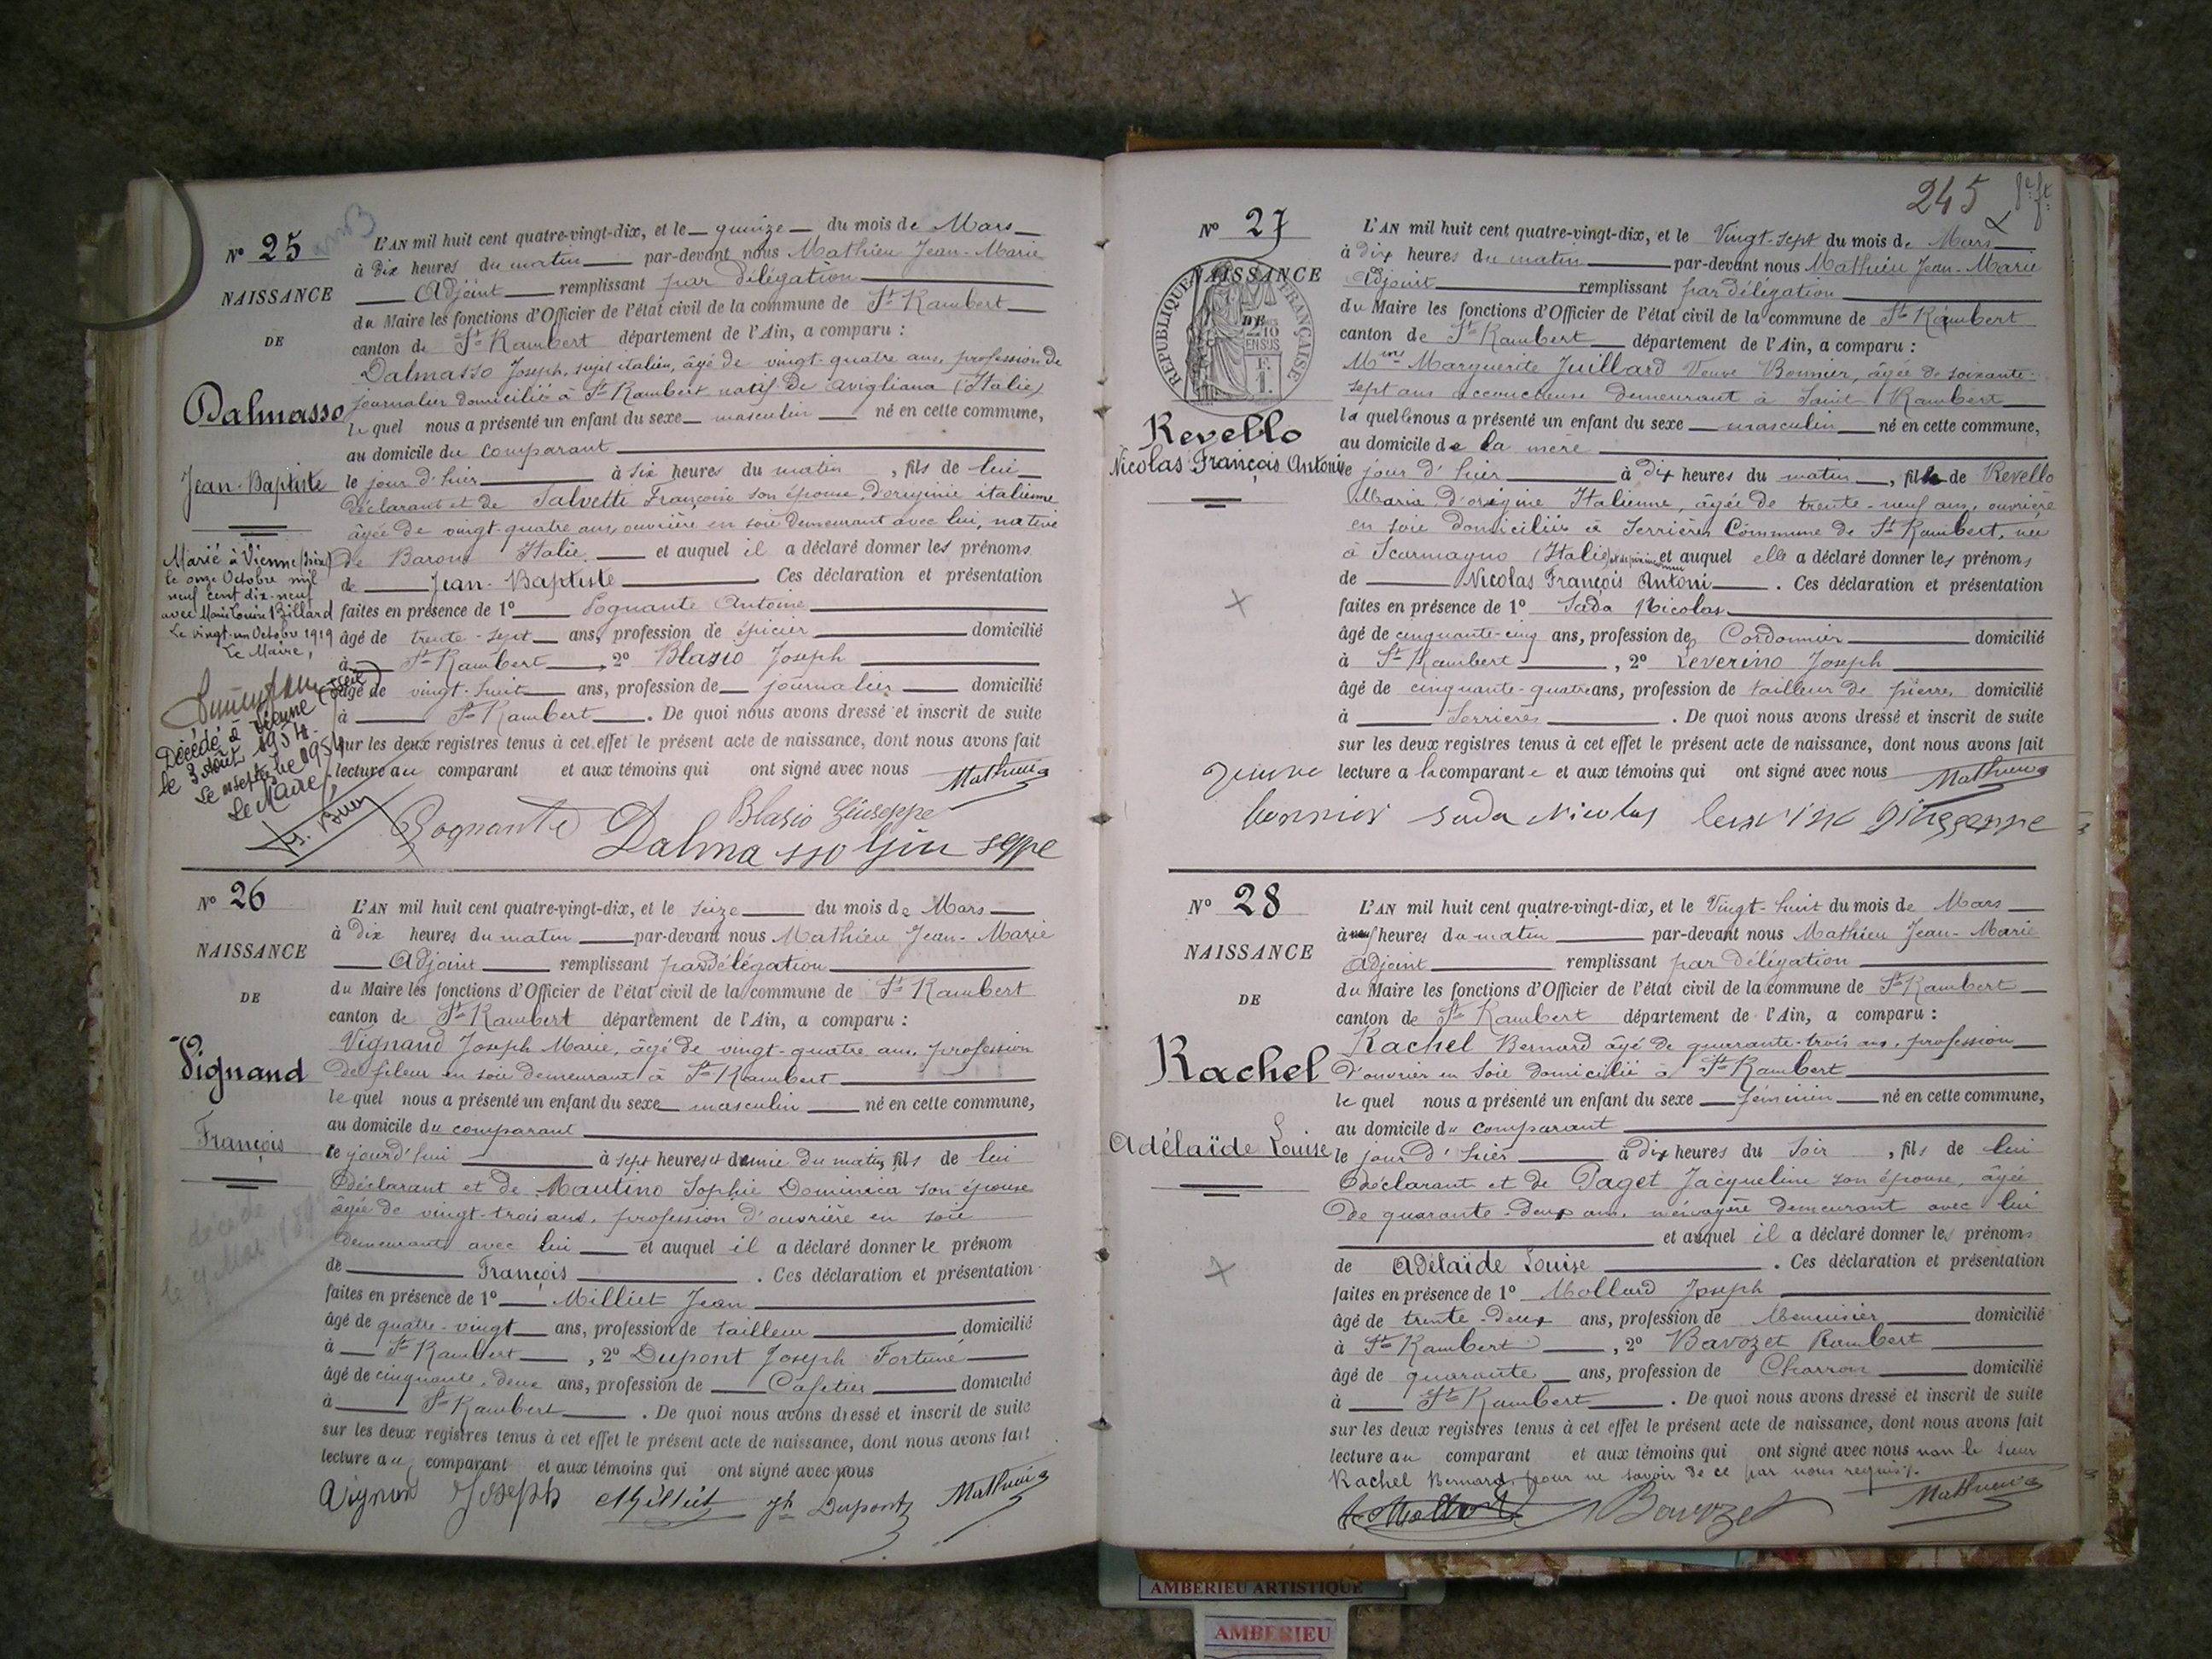 N° 25
NAISSANCE
DE
Dalmasso
Jean-Baptiste
L'AN mil huit cent quatre-vingt-dix, et le quinze du mois de Mars
à dix heures du matin par-devant nous Mathieu Jean-Marie
Adjoint remplissant par délégation
du Maire les fonctions d'Officier de l'état civil de la commune de St Rambert
canton de St Rambert département de l'Ain, a comparu :
Dalmasso Joseph, sujet italien, âgé de vingt-quatre ans, profession de
journalier domicilié à St Rambert natif de Avigliana (Italie)
lequel nous a présenté un enfant du sexe masculin né en cette commune,
au domicile du comparant
le jour d'hier à six heures du matin, fils de lui
déclarant et de Salvetti Françoise son épouse, d'origine italienne
âgée de vingt-quatre ans, ouvrière en soie demeurant avec lui, native
de Barone Italie et auquel il a déclaré donner les prénoms
de Jean-Baptiste. Ces déclaration et présentation
faites en présence de 1° Pognante Antoine
âgé de trente-sept ans, profession de épicier domicilié
à St Rambert, 2° Blasio Joseph
âgé de vingt-huit ans, profession de journalier domicilié
à St Rambert. De quoi nous avons dressé et inscrit de suite
sur les deux registres tenus à cet effet le présent acte de naissance, dont nous avons fait
lecture au comparant et aux témoins qui ont signé avec nous Mathieu
Pognante Blasio Giuseppe
Dalmasso Giuseppe
Marié à Vienne (Isère)
le onze Octobre mil
neuf cent dix-neuf
avec Marie Louise Billard
Le vingt-un Octobre 1919
Le Maire,
Décédé à Vienne (Isère)
le 3 Août 1954
Le septembre 1954
Le Maire,
N° 26
NAISSANCE
DE
Vignand
François
L'AN mil huit cent quatre-vingt-dix, et le seize du mois de Mars
à dix heures du matin par-devant nous Mathieu Jean-Marie
Adjoint remplissant par délégation
du Maire les fonctions d'Officier de l'état civil de la commune de St Rambert
canton de St Rambert département de l'Ain, a comparu :
Vignand Joseph Marie, âgé de vingt-quatre ans, profession
de fileur en soie demeurant à St Rambert
lequel nous a présenté un enfant du sexe masculin né en cette commune,
au domicile du comparant
ce jourd'hui à sept heures et demie du matin, fils de lui
déclarant et de Mautino Sophie Dominica son épouse
âgée de vingt-trois ans, profession d'ouvrière en soie
demeurant avec lui et auquel il a déclaré donner le prénom
de François. Ces déclaration et présentation
faites en présence de 1° Milliet Jean
âgé de quatre-vingt ans, profession de tailleur domicilié
à St Rambert, 2° Dupont Joseph Fortuné
âgé de cinquante-deux ans, profession de Cafetier domicilié
à St Rambert. De quoi nous avons dressé et inscrit de suite
sur les deux registres tenus à cet effet le présent acte de naissance, dont nous avons fait
lecture au comparant et aux témoins qui ont signé avec nous
Vignand Joseph Milliet Jh Dupont Mathieu
décédé
245
N° 27
NAISSANCE
DE
RÉPUBLIQUE FRANÇAISE
2/10 EN SUS
Revello
Nicolas François Antoni
L'AN mil huit cent quatre-vingt-dix, et le Vingt-sept du mois de Mars
à dix heures du matin par-devant nous Mathieu Jean-Marie
Adjoint remplissant par délégation
du Maire les fonctions d'Officier de l'état civil de la commune de St Rambert
canton de St Rambert département de l'Ain, a comparu :
Mme Marguerite Juillard Veuve Bonnier, âgée de soixante-
sept ans accoucheuse demeurant à Saint-Rambert
laquelle nous a présenté un enfant du sexe masculin né en cette commune,
au domicile de la mère
le jour d'hier à dix heures du matin, fils de Revello
Maria, d'origine Italienne, âgée de trente-neuf ans, ouvrière
en soie domiciliée à Serrières Commune de St Rambert, née
à Scarmagno (Italie) et auquel elle a déclaré donner les prénoms
de Nicolas François Antoni. Ces déclaration et présentation
faites en présence de 1° Sada Nicolas
âgé de cinquante-cinq ans, profession de Cordonnier domicilié
à St Rambert, 2° Leverino Joseph
âgé de cinquante-quatre ans, profession de tailleur de pierres domicilié
à Serrières. De quoi nous avons dressé et inscrit de suite
sur les deux registres tenus à cet effet le présent acte de naissance, dont nous avons fait
lecture a la comparante et aux témoins qui ont signé avec nous Mathieu
bonnier sada Nicolas
N° 28
NAISSANCE
DE
Rachel
Adélaïde Louise
L'AN mil huit cent quatre-vingt-dix, et le Vingt-huit du mois de Mars
à neuf heures du matin par-devant nous Mathieu Jean-Marie
Adjoint remplissant par délégation
du Maire les fonctions d'Officier de l'état civil de la commune de St Rambert
canton de St Rambert département de l'Ain, a comparu :
Rachel Bernard âgé de quarante-trois ans, profession
d'ouvrier en soie domicilié à St Rambert
lequel nous a présenté un enfant du sexe féminin né en cette commune,
au domicile du comparant
le jour d'hier à dix heures du soir, fils de lui
déclarant et de Paget Jacqueline son épouse, âgée
de quarante-deux ans, ménagère demeurant avec lui
et auquel il a déclaré donner les prénoms
de Adélaïde Louise. Ces déclaration et présentation
faites en présence de 1° Mollard Joseph
âgé de trente-deux ans, profession de Menuisier domicilié
à St Rambert, 2° Bavozet Rambert
âgé de quarante ans, profession de Charron domicilié
à St Rambert. De quoi nous avons dressé et inscrit de suite
sur les deux registres tenus à cet effet le présent acte de naissance, dont nous avons fait
lecture au comparant et aux témoins qui ont signé avec nous non le sieur
Rachel Bernard pour ne savoir de ce par nous requis.
Mollard Bavozet Mathieu
AMBERIEU ARTISTIQUE
AMBERIEU